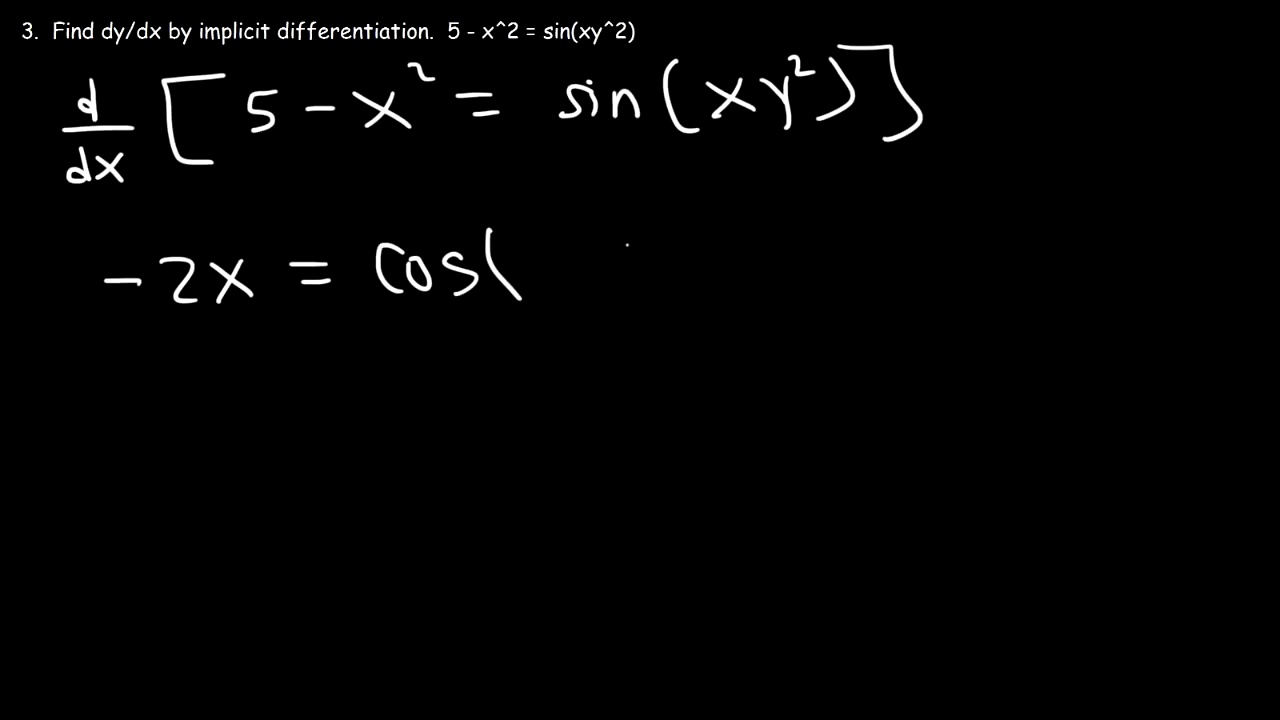 3. Find dy/dx by implicit differentiation. 5 - x^2 = sin(xy^2)
d/dx [5 - x² = sin(xy²)]
-2x = cos(